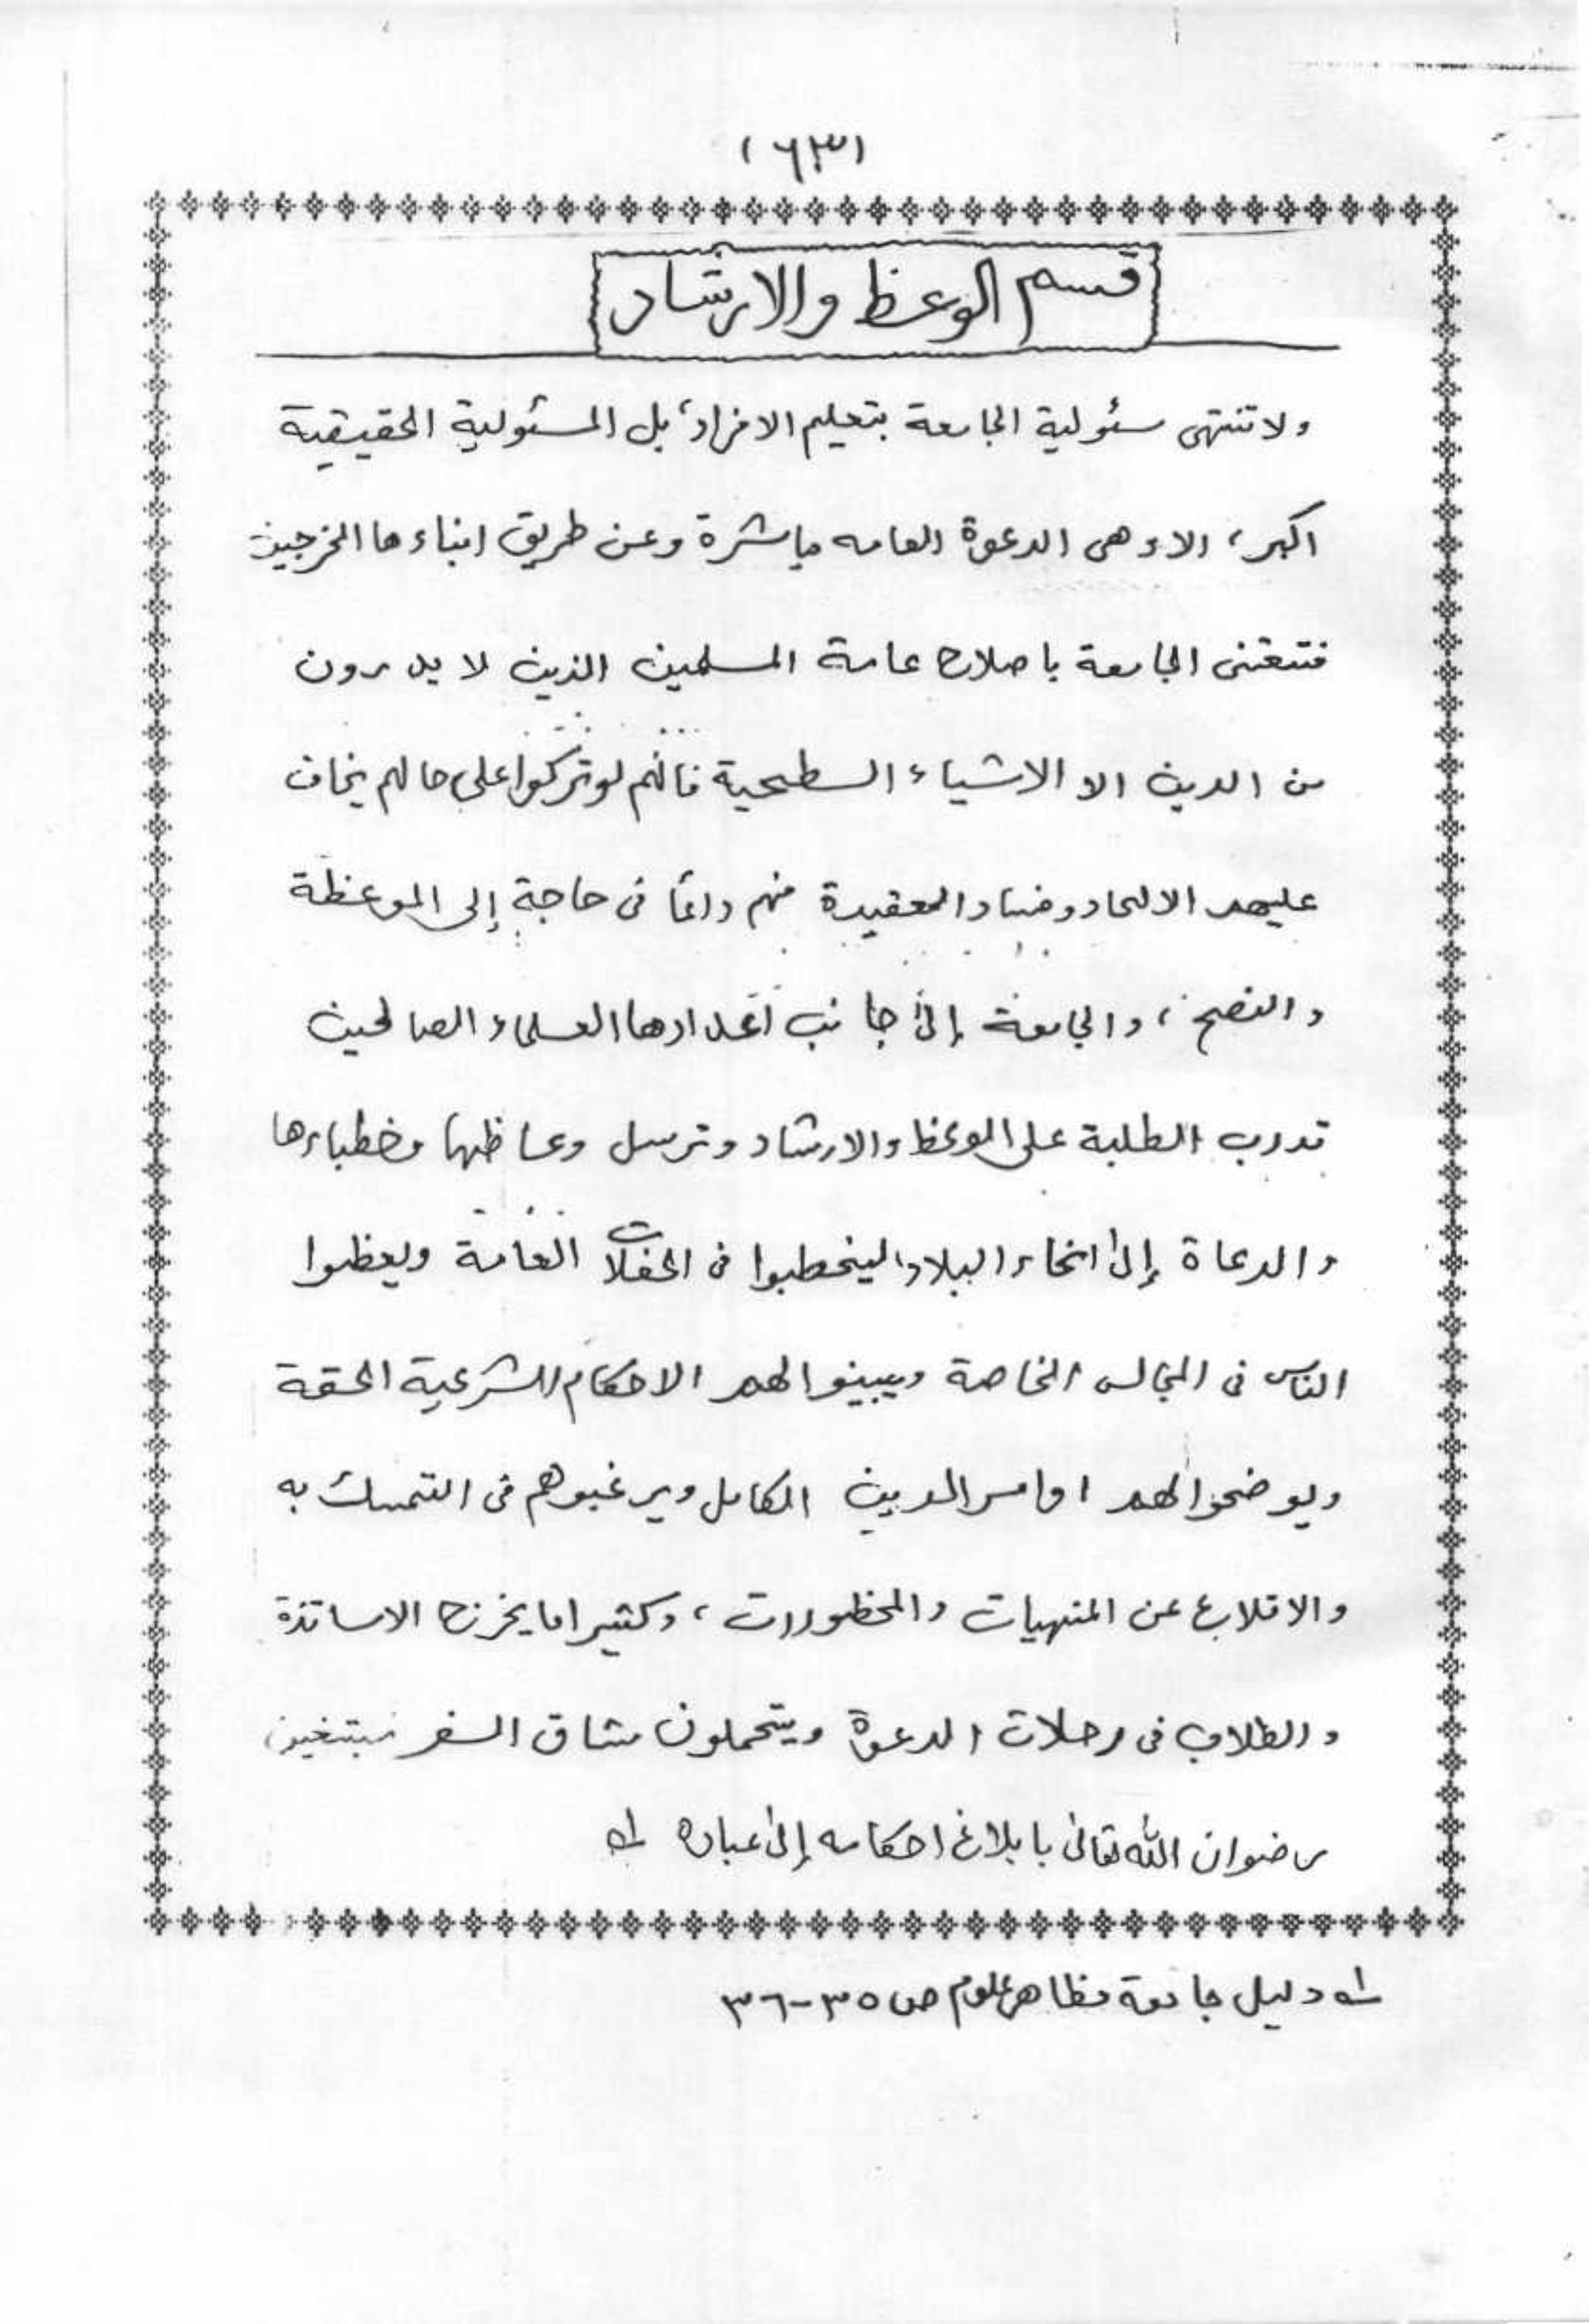 (٦٣)
قسم الوعظ والارشاد
ولا تنتهى سئولية الجامعة بتعليم الافراد، بل المسئولية الحقيقية
اكبر، الا وهى الدعوة العامه مباشرة وعن طريق ابناءها الخرجين
فتعتنى الجامعة باصلاح عامة المسلمين الذين لا يدرون
من الدين الا الاشياء السطحية فانهم لو تركوا على حالهم يخاف
عليهم الالحاد وفساد العقيدة فهم دائما فى حاجة إلى الموعظة
والنصح، والجامعة إلى جانب اعدادها العلماء الصالحين
تدرب الطلبة على الوعظ والارشاد وترسل وعاظها وخطباءها
والدعاة إلى انحاء البلاد ليخطبوا فى الحفلات العامة ويعظوا
الناس فى المجالس الخاصة ويبينوا لهم الاحكام الشرعية الحقة
ويوضحوا لهم اوامر الدين الكامل ويرغبوهم فى التمسك به
والاقلاع عن المنهيات والمحظورات، وكثيرا ما يخرج الاساتذة
والطلاب فى رحلات الدعوة ويتحملون مشاق السفر مبتغين
رضوان الله تعالى بابلاغ احكامه إلى عباده لـه
لـه دليل جامعة مظاهر علوم ص ٣٥-٣٦